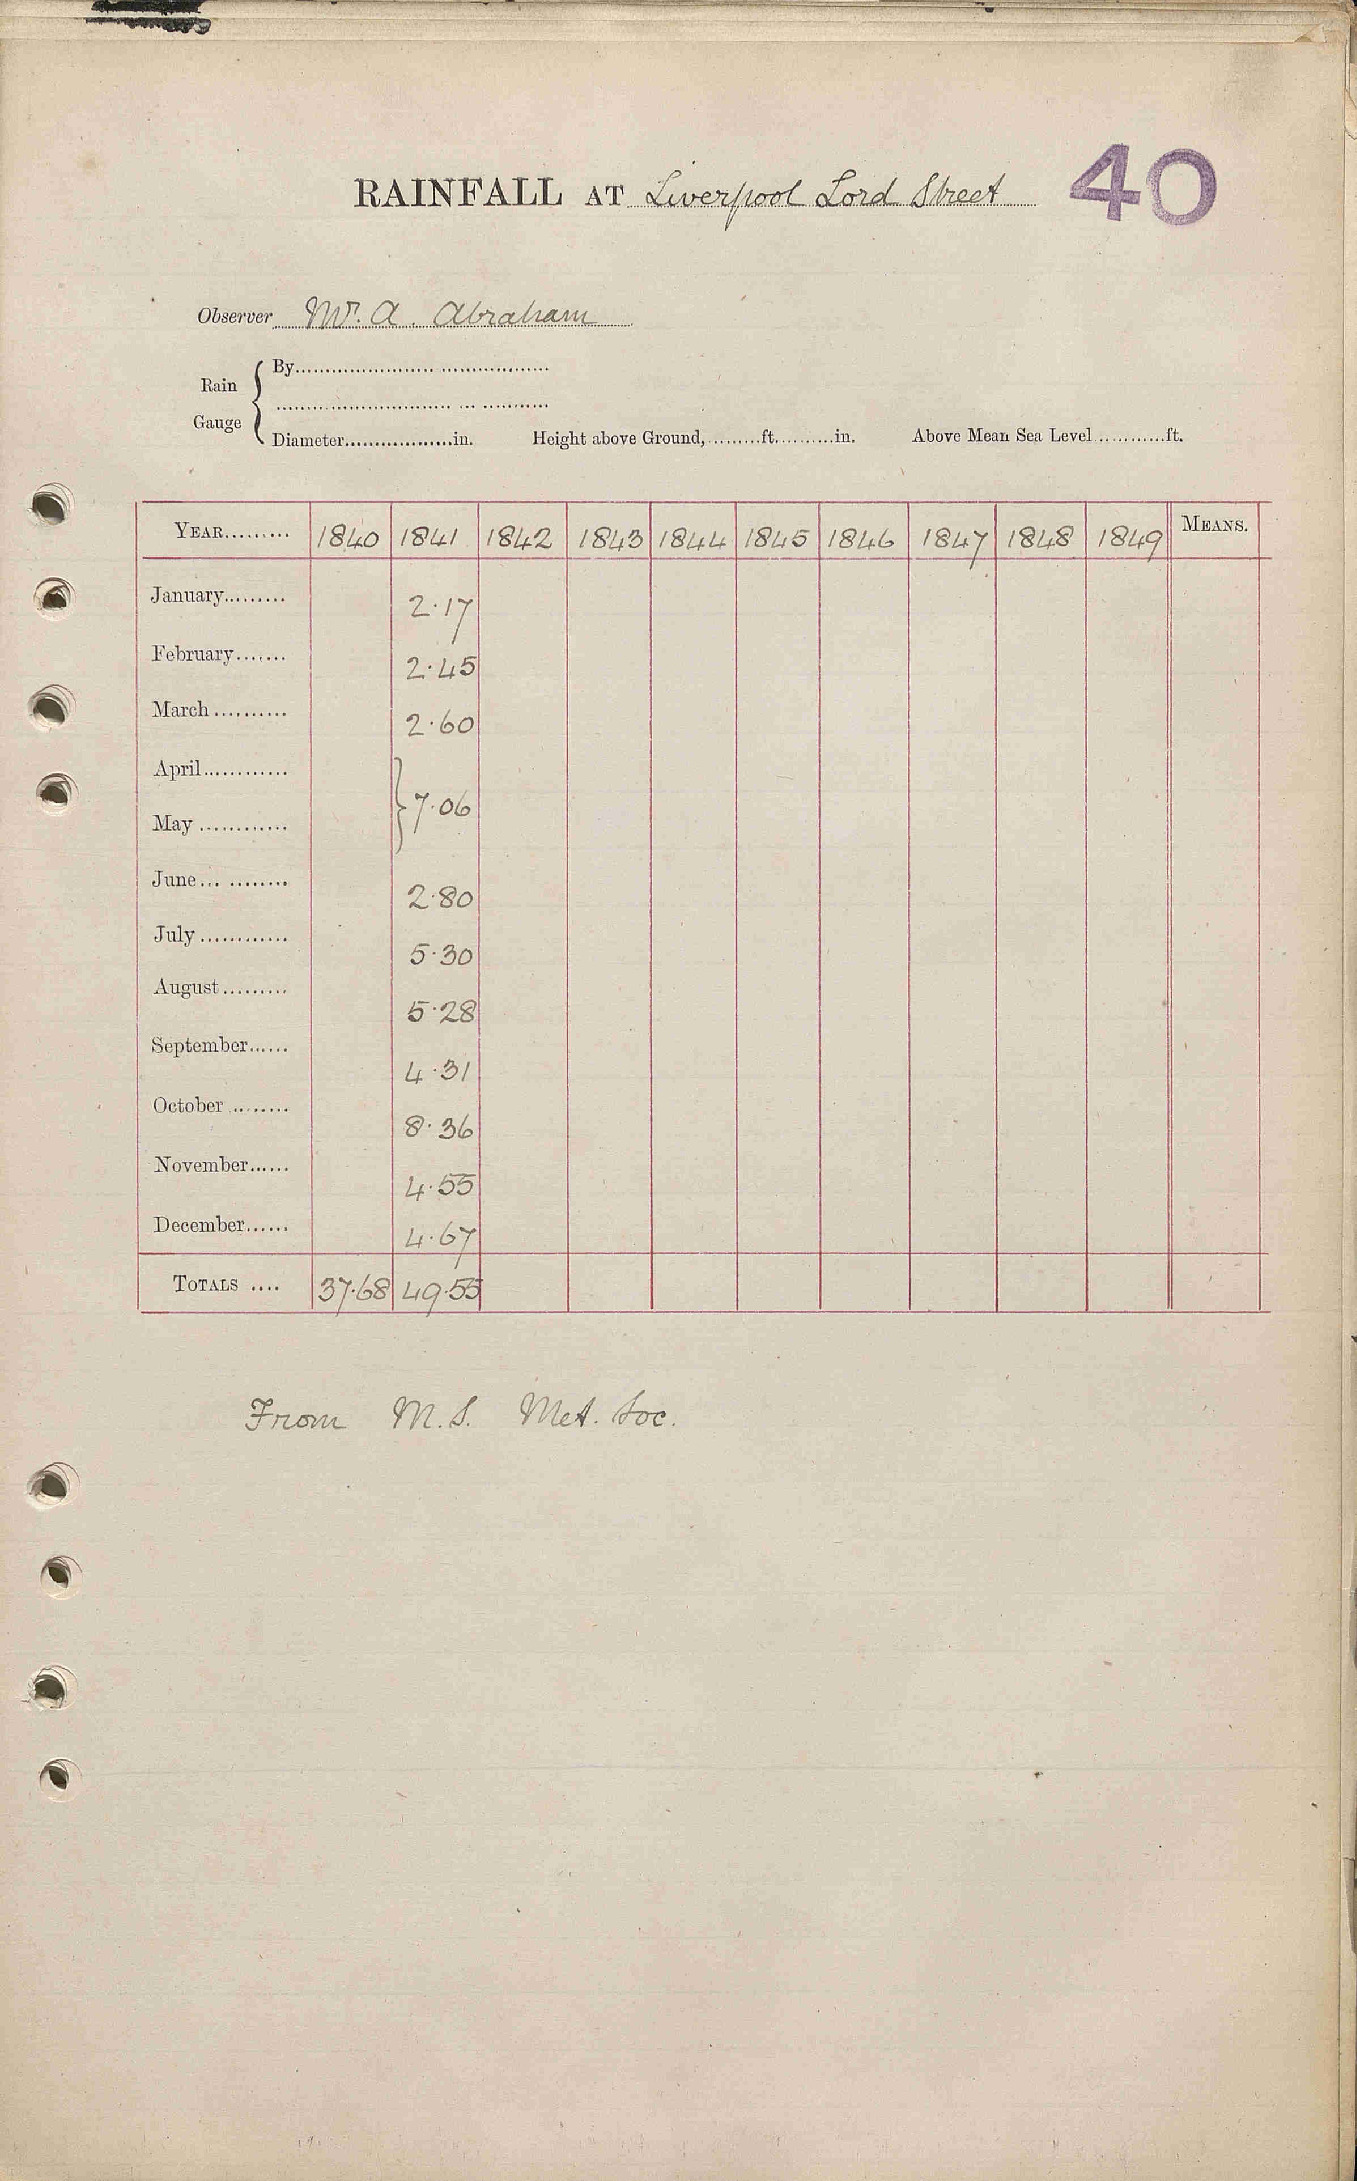 RAINFALL AT Liverpool Lord Street 40
Observer Mr. A. Abraham
Rain Gauge { By
Diameter in. Height above Ground, ft. in. Above Mean Sea Level ft.
YEAR 1840 1841 1842 1843 1844 1845 1846 1847 1848 1849 MEANS.
January 2.17
February 2.45
March 2.60
April
} 7.06
May
June 2.80
July 5.30
August 5.28
September 4.31
October 8.36
November 4.55
December 4.67
TOTALS 37.68 49.55
From M.S. Met. Soc.